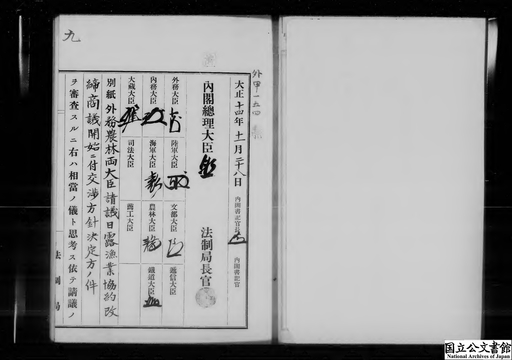 外甲一五四
大正十四年十一月二十八日
内閣書記官長
内閣書記官
内閣總理大臣
法制局長官
外務大臣
陸軍大臣
文部大臣
遞信大臣
内務大臣
海軍大臣
農林大臣
鐵道大臣
大藏大臣
司法大臣
商工大臣
別紙外務農林両大臣請議日露漁業協約改
締商議開始ニ付交渉方針決定方ノ件
ヲ審査スルニ右ハ相當ノ儀ト思考ス依テ請議ノ
法制局
九
国立公文書館
National Archives of Japan